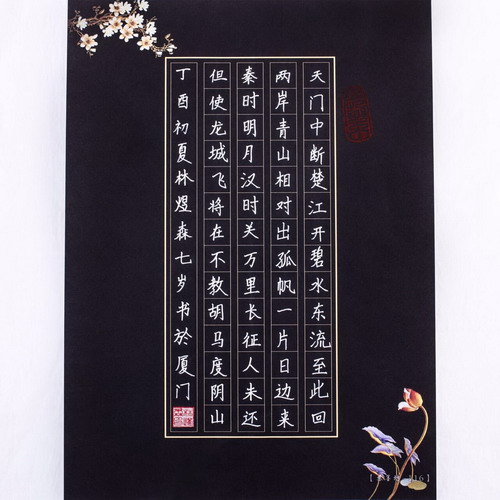 天门中断楚江开碧水东流至此回
两岸青山相对出孤帆一片日边来
秦时明月汉时关万里长征人未还
但使龙城飞将在不教胡马度阴山
丁酉初夏林煜森七岁书於厦门